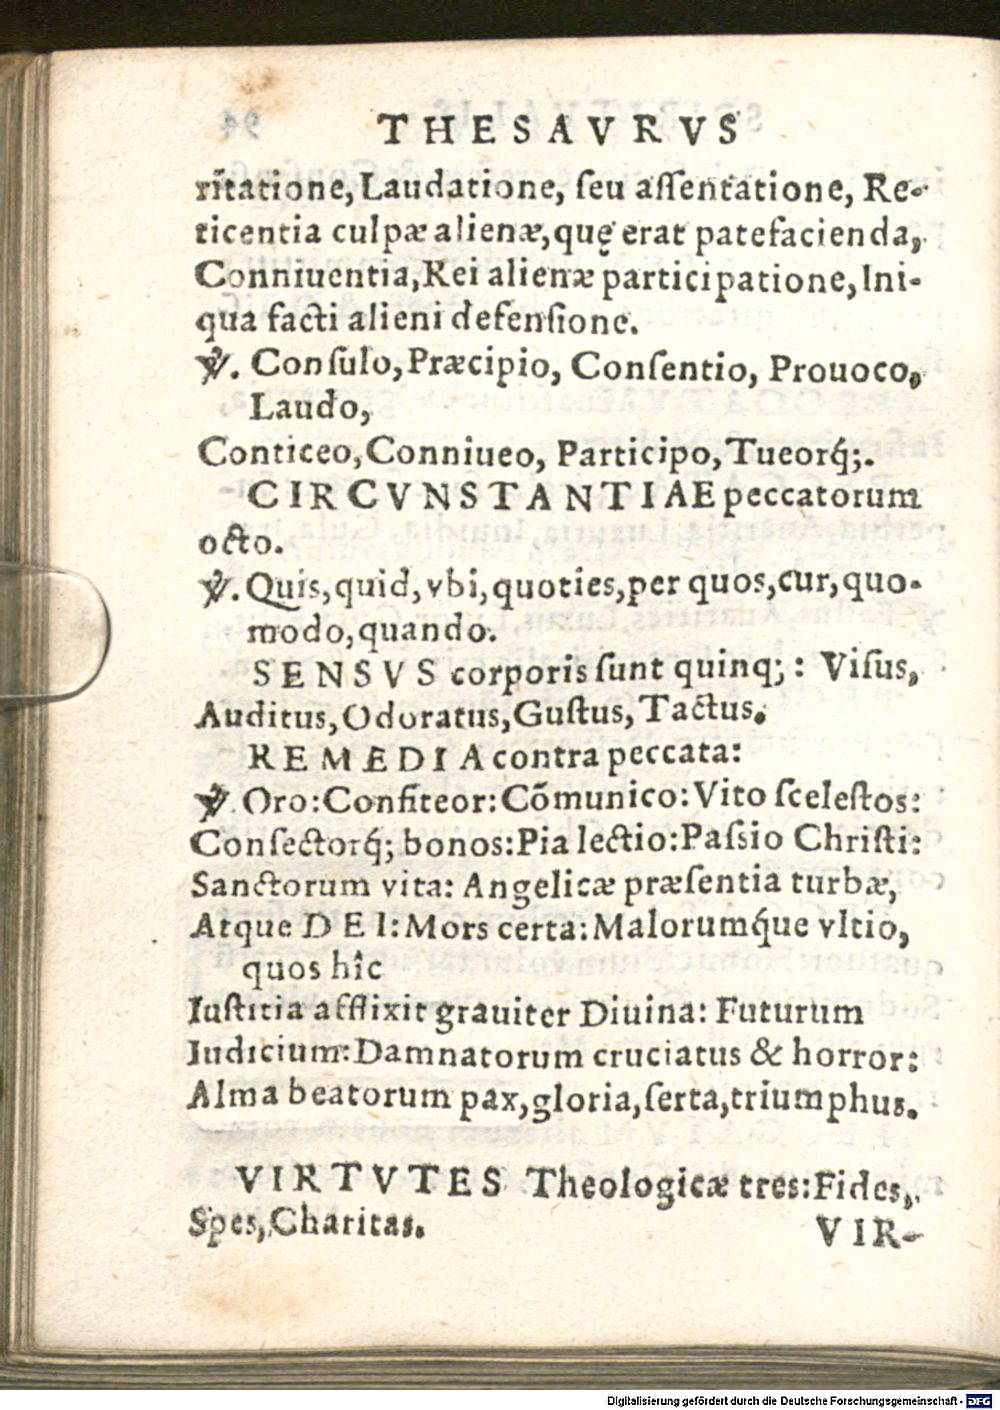 THESAVRVS
ritatione, Laudatione, ſeu aſſentatione, Re-
ticentia culpæ alienæ, quę erat patefacienda,
Conniuentia, Rei alienæ participatione, Ini-
qua facti alieni defenſione.
℣. Conſulo, Præcipio, Conſentio, Prouoco,
Laudo,
Conticeo, Conniueo, Participo, Tueorq́;.
CIRCVNSTANTIAE peccatorum
octo.
℣. Quis, quid, vbi, quoties, per quos, cur, quo-
modo, quando.
SENSVS corporis ſunt quinq;: Viſus,
Auditus, Odoratus, Guſtus, Tactus.
REMEDIA contra peccata:
℣. Oro: Confiteor: Cõmunico: Vito ſceleſtos:
Conſectorq́; bonos: Pia lectio: Paſsio Chriſti:
Sanctorum vita: Angelicæ præſentia turbæ,
Atque DEI: Mors certa: Malorumq́ue vltio,
quos hîc
Iuſtitia afflixit grauiter Diuina: Futurum
Iudicium: Damnatorum cruciatus & horror:
Alma beatorum pax, gloria, ſerta, triumphus.
VIRTVTES Theologicæ tres: Fides,
Spes, Charitas.
VIR-
Digitalisierung gefördert durch die Deutsche Forschungsgemeinschaft - DFG